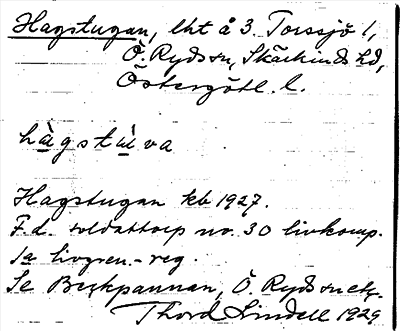 Hagstugan, lht å 3. Torssjö 1,
Ö. Ryds sn, Skärkinds hd,
Östergötl. l.
hàgstùva
Hagstugan kb 1927.
F.d. soldattorp no. 30 livkomp.
1a livgren.-reg.
Se Beckpannan, Ö. Ryds sn etc.
Thord Lindell 1929